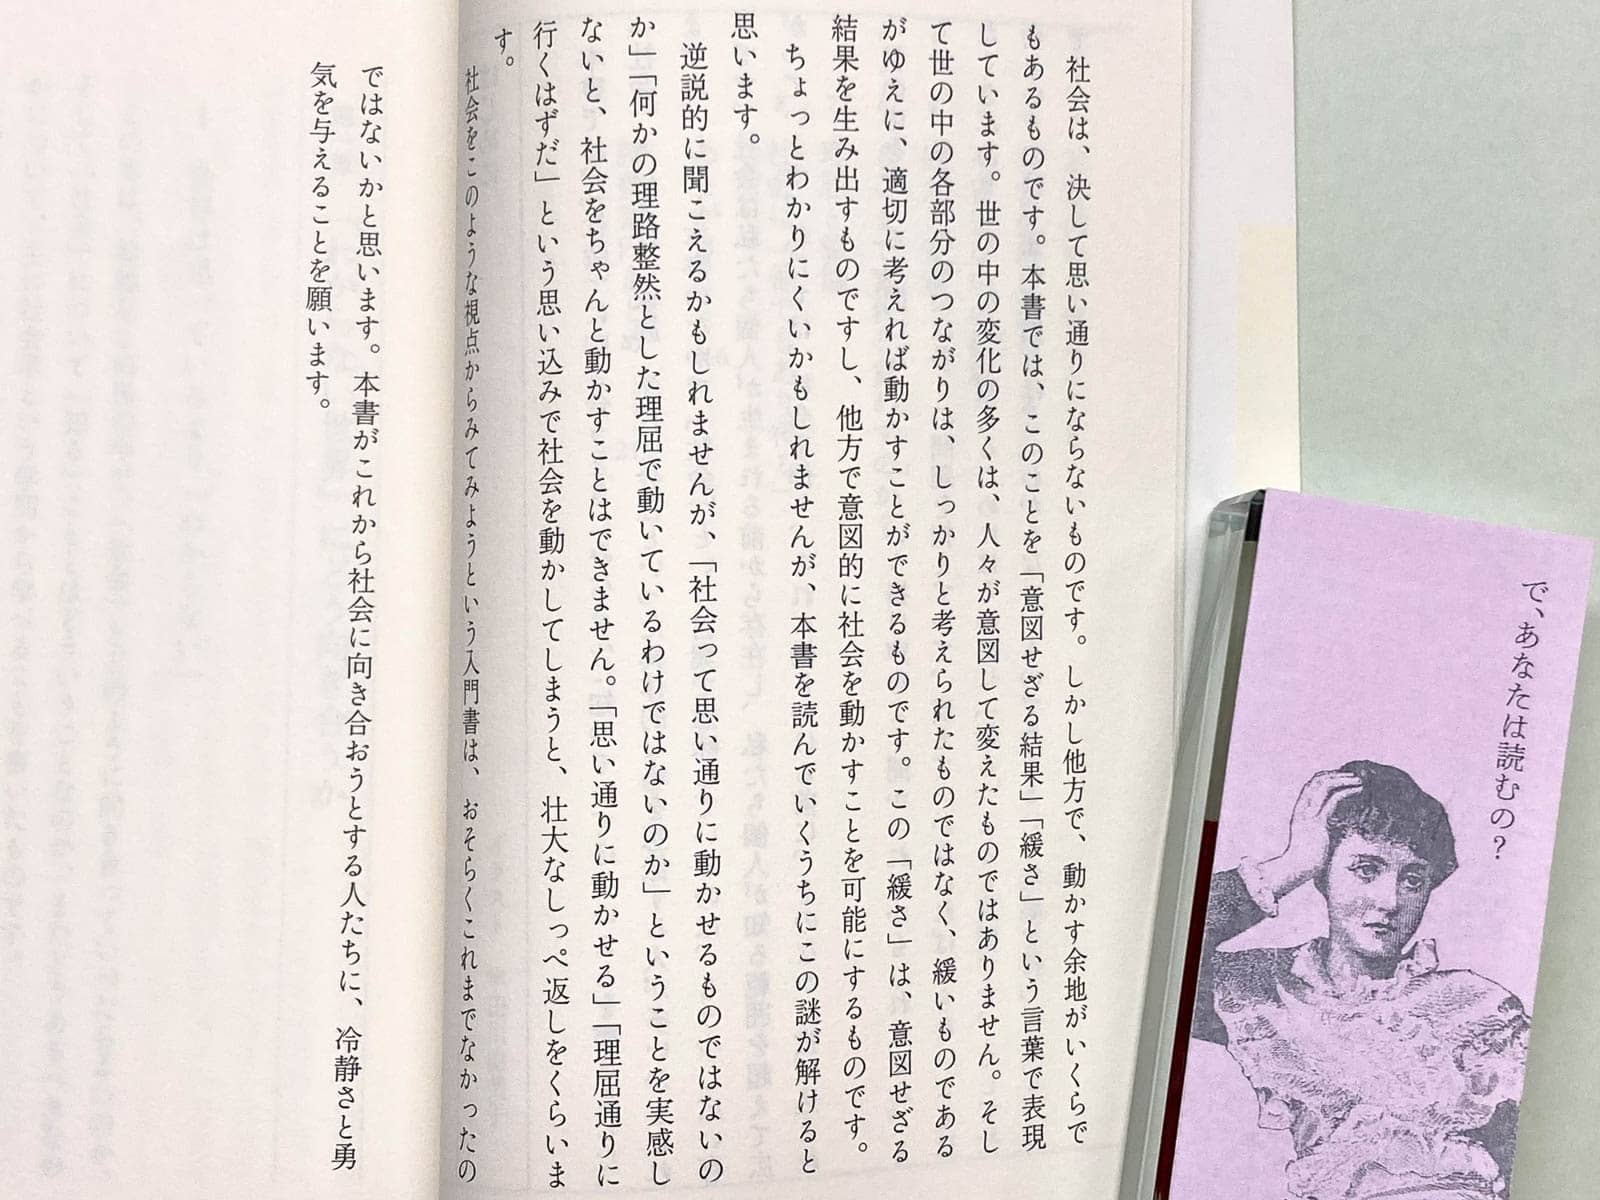 社会は、決して思い通りにならないものです。しかし他方で、動かす余地がいくらで
もあるものです。本書では、このことを「意図せざる結果」「緩さ」という言葉で表現
しています。世の中の変化の多くは、人々が意図して変えたものではありません。そし
て世の中の各部分のつながりは、しっかりと考えられたものではなく、緩いものである
がゆえに、適切に考えれば動かすことができるものです。この「緩さ」は、意図せざる
結果を生み出すものですし、他方で意図的に社会を動かすことを可能にするものです。
ちょっとわかりにくいかもしれませんが、本書を読んでいくうちにこの謎が解けると
思います。
逆説的に聞こえるかもしれませんが、「社会って思い通りに動かせるものではないの
か」「何かの理路整然とした理屈で動いているわけではないのか」ということを実感し
ないと、社会をちゃんと動かすことはできません。「思い通りに動かせる」「理屈通りに
行くはずだ」という思い込みで社会を動かしてしまうと、壮大なしっぺ返しをくらいま
す。
社会をこのような視点からみてみようという入門書は、おそらくこれまでなかったの
ではないかと思います。本書がこれから社会に向き合おうとする人たちに、冷静さと勇
気を与えることを願います。
で、あなたは読むの?